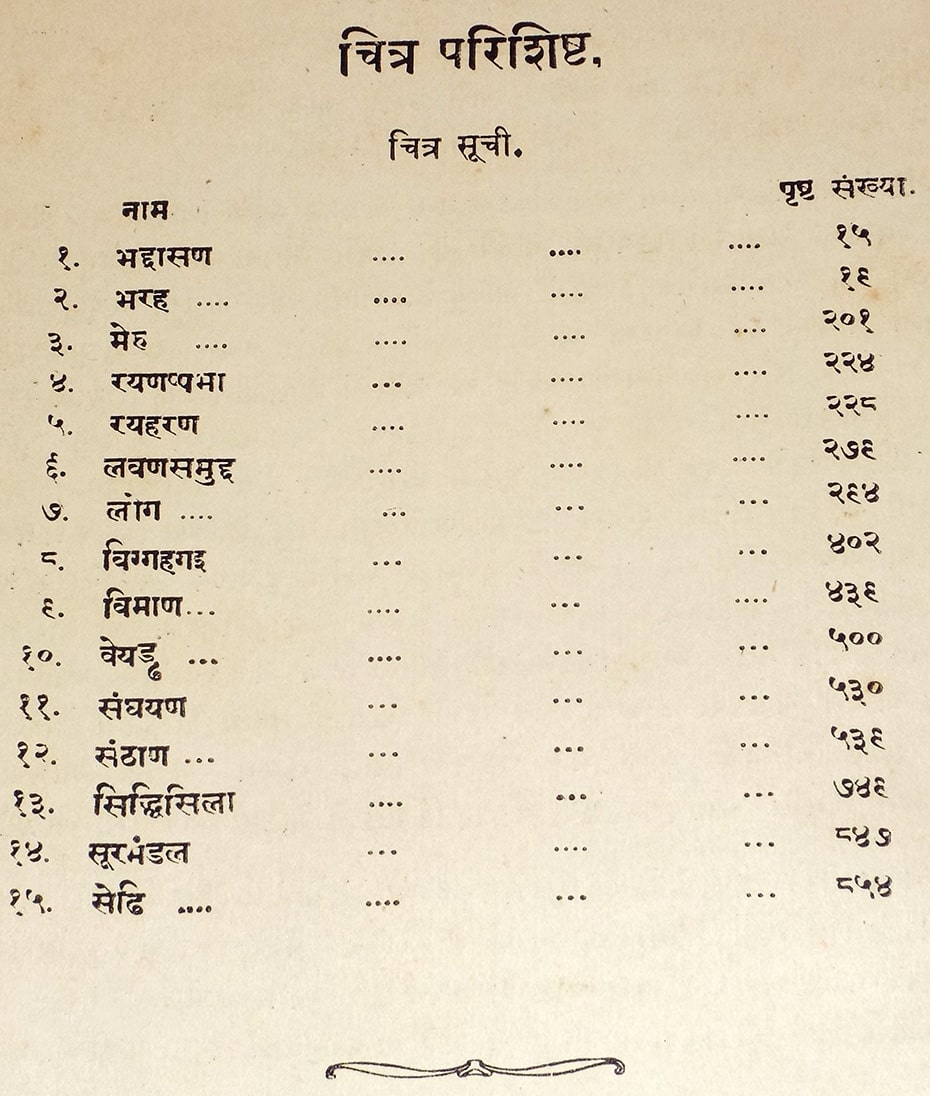 चित्र परिशिष्ट.
चित्र सूची.
नाम पृष्ट संख्या.
१. भद्दासण .... .... .... १५
२. भरह .... .... .... .... १९
३. मेरु .... .... .... .... २०१
४. रयणप्पभा ... .... .... २२४
५. रयहरण .... .... .... २२८
६. लवणसमुद्द .... .... .... २७९
७. लोग .... ... ... ... २९४
८. विग्गहगइ ... ... ... ४०२
९. विमाण... .... ... .... ४३९
१०. वेयड्ढ ... .... ... ... ५००
११. संघयण ... ... ... ५३०
१२. संठाण ... ... ... ... ५३९
१३. सिद्धिसिला .... ... ... ७४९
१४. सूरमंडल ... .... ... ८४७
१५. सेढि .... .... ... ... ८५४